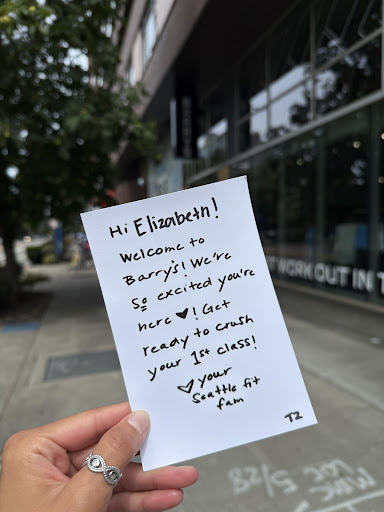 Hi Elizabeth!
Welcome to
Barry's! We're
So excited you're
here ♥! Get
ready to crush
your 1st class!
♡ your
Seattle fit
fam
TZ
WORK OUT IN T
5/28